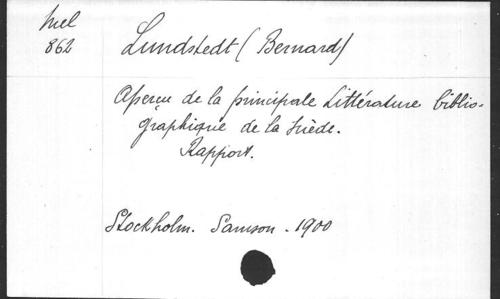 Mel
862
Lundstedt (Bernard)
Aperçu de la principale Littérature biblio-
graphique de la Suède.
Rapport.
Stockholm. Samson. 1900